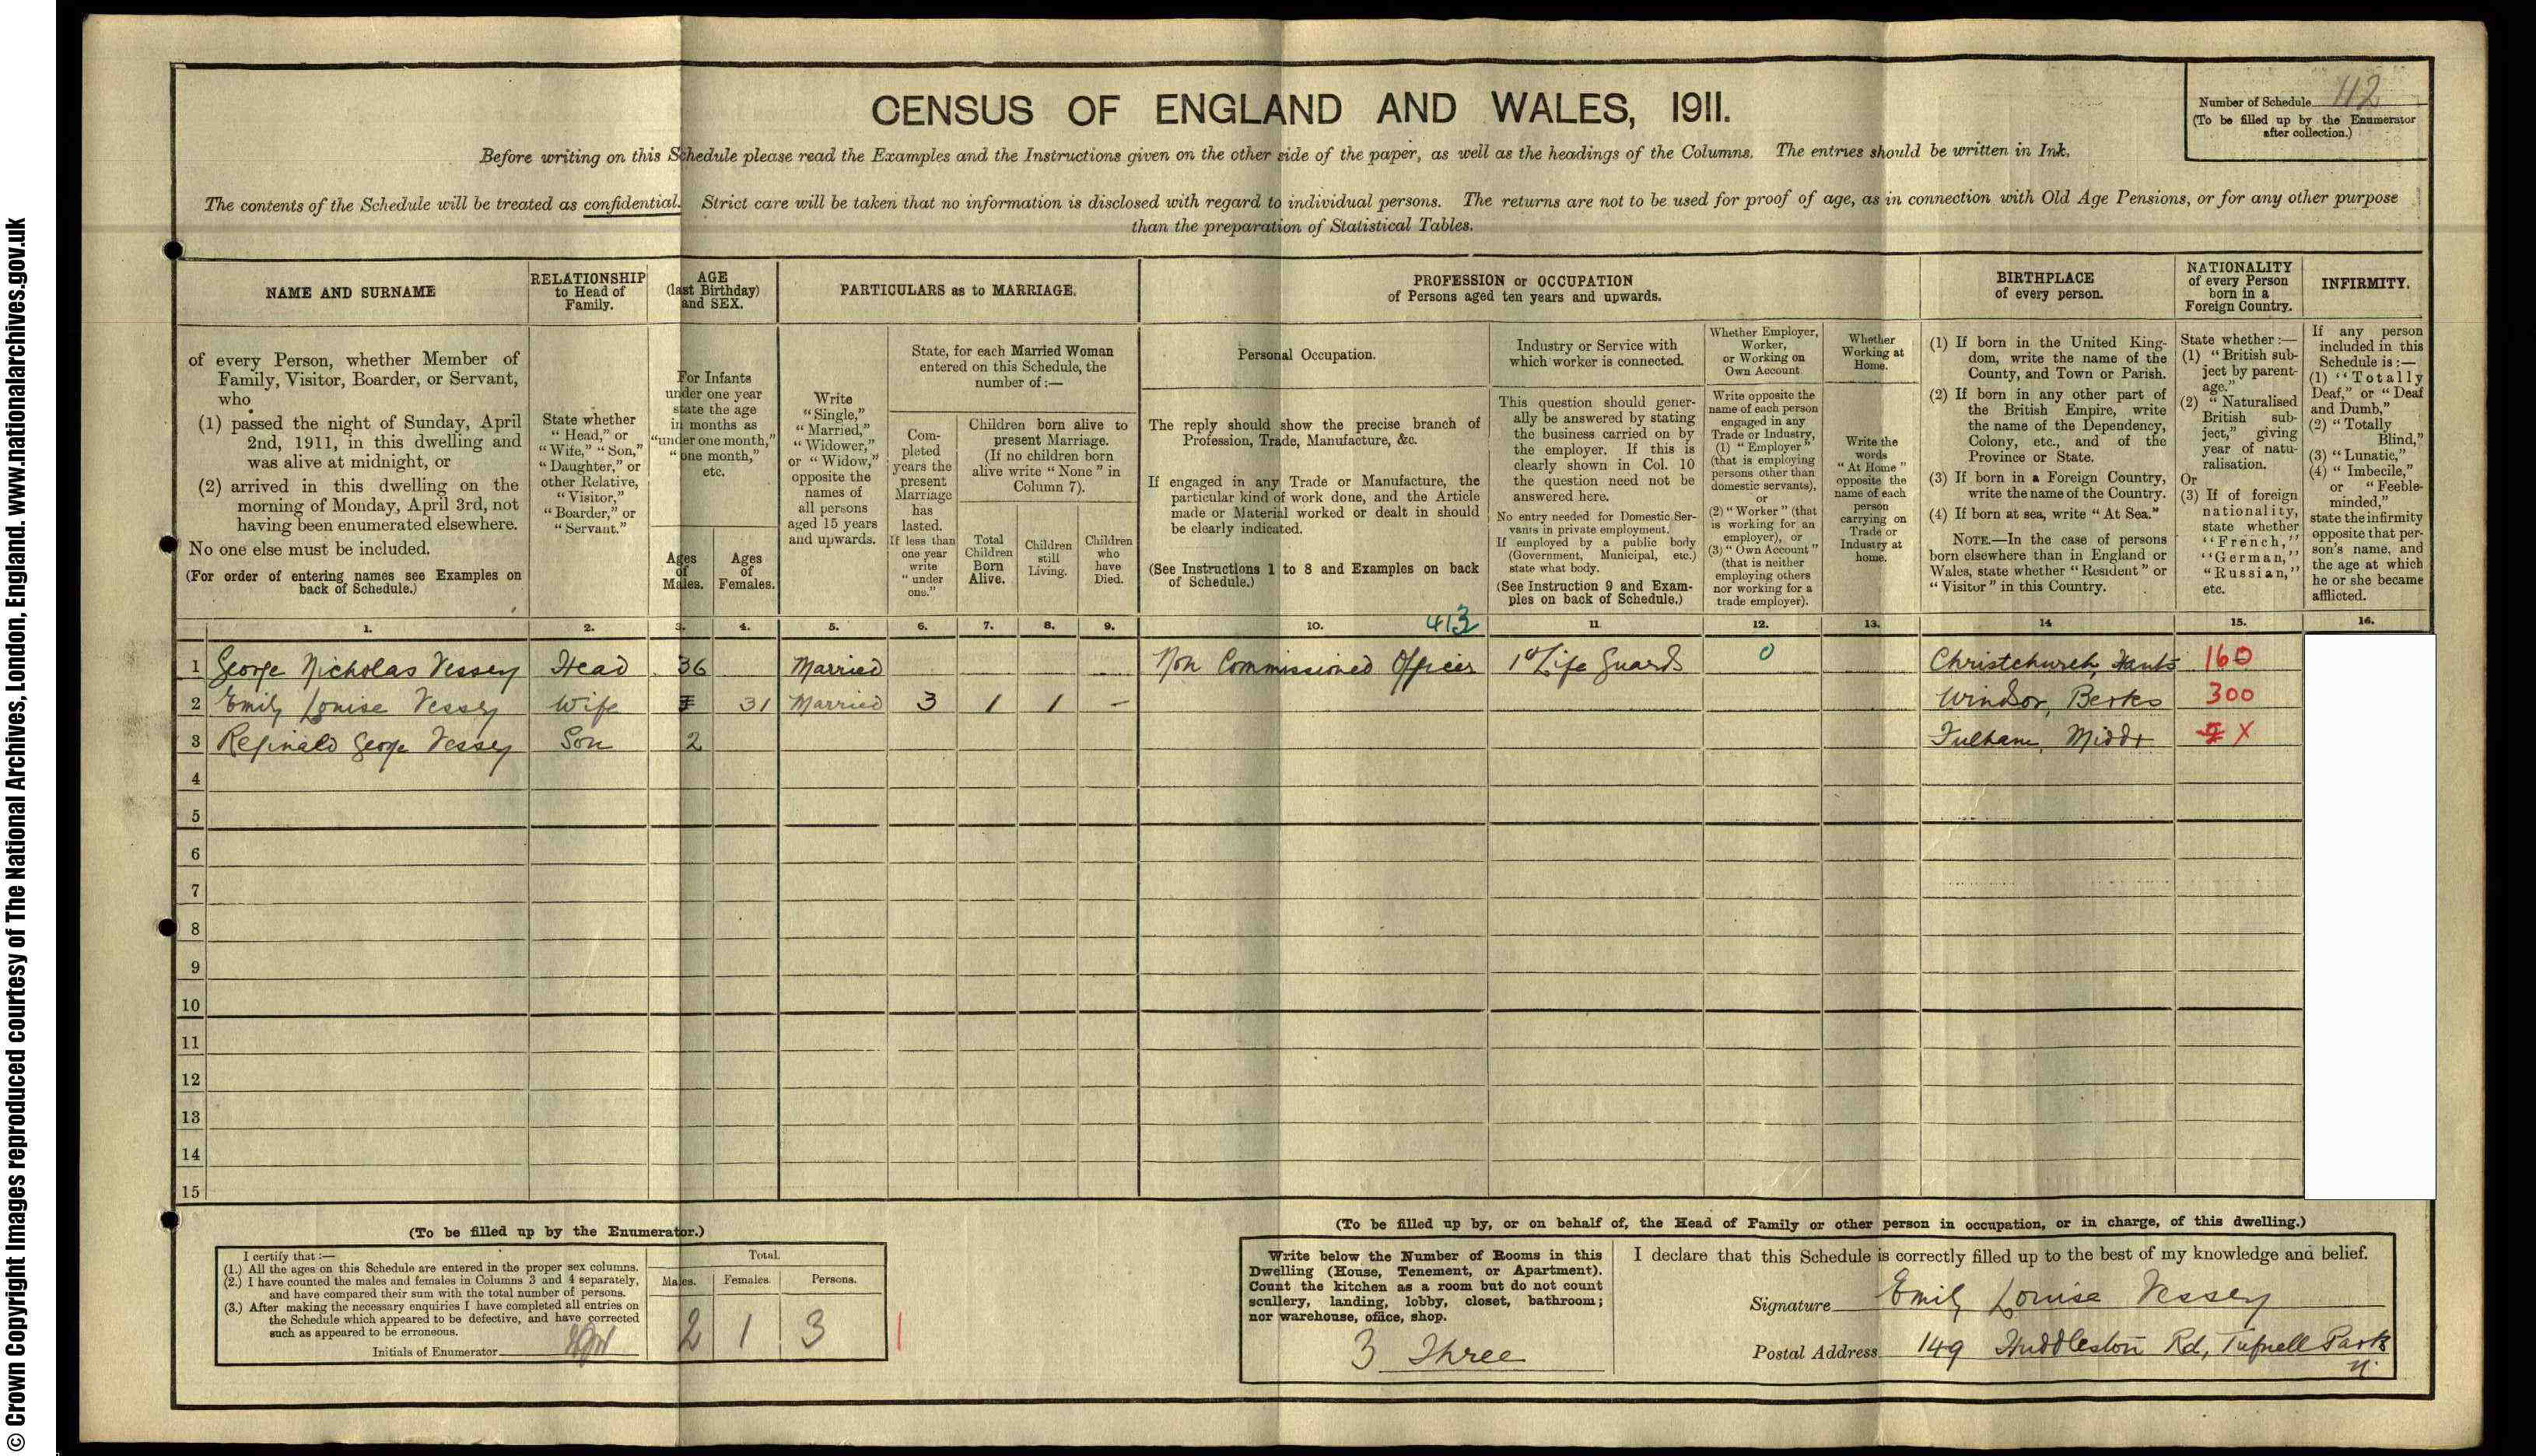 © Crown Copyright Images reproduced courtesy of The National Archives, London, England. www.nationalarchives.gov.uk
CENSUS OF ENGLAND AND WALES, 1911.
Number of Schedule 112
(To be filled up by the Enumerator
after collection.)
Before writing on this Schedule please read the Examples and the Instructions given on the other side of the paper, as well as the headings of the Columns. The entries should be written in Ink.
The contents of the Schedule will be treated as confidential. Strict care will be taken that no information is disclosed with regard to individual persons. The returns are not to be used for proof of age, as in connection with Old Age Pensions, or for any other purpose
than the preparation of Statistical Tables.
NAME AND SURNAME
of every Person, whether Member of
Family, Visitor, Boarder, or Servant,
who
(1) passed the night of Sunday, April
2nd, 1911, in this dwelling and
was alive at midnight, or
(2) arrived in this dwelling on the
morning of Monday, April 3rd, not
having been enumerated elsewhere.
No one else must be included.
(For order of entering names see Examples on
back of Schedule.)
RELATIONSHIP
to Head of
Family.
State whether
"Head," or
"Wife," "Son,"
"Daughter," or
other Relative,
"Visitor,"
"Boarder," or
"Servant."
AGE
(last Birthday)
and SEX.
For Infants
under one year
state the age
in months as
"under one month,"
"one month,"
etc.
Ages
of
Males.
Ages
of
Females.
PARTICULARS as to MARRIAGE.
Write
"Single,"
"Married,"
"Widower,"
or "Widow,"
opposite the
names of
all persons
aged 15 years
and upwards.
State, for each Married Woman
entered on this Schedule, the
number of:—
Com-
pleted
years the
present
Marriage
has
lasted.
If less than
one year
write
"under
one."
Children born alive to
present Marriage.
(If no children born
alive write "None" in
Column 7).
Total
Children
Born
Alive.
Children
still
Living.
Children
who
have
Died.
PROFESSION or OCCUPATION
of Persons aged ten years and upwards.
Personal Occupation.
The reply should show the precise branch of
Profession, Trade, Manufacture, &c.
If engaged in any Trade or Manufacture, the
particular kind of work done, and the Article
made or Material worked or dealt in should
be clearly indicated.
(See Instructions 1 to 8 and Examples on back
of Schedule.)
Industry or Service with
which worker is connected.
This question should gener-
ally be answered by stating
the business carried on by
the employer. If this is
clearly shown in Col. 10
the question need not be
answered here.
No entry needed for Domestic Ser-
vants in private employment.
If employed by a public body
(Government, Municipal, etc.)
state what body.
(See Instruction 9 and Exam-
ples on back of Schedule.)
Whether Employer,
Worker,
or Working on
Own Account.
Write opposite the
name of each person
engaged in any
Trade or Industry,
(1) "Employer"
(that is employing
persons other than
domestic servants),
or
(2) "Worker" (that
is working for an
employer), or
(3) "Own Account"
(that is neither
employing others
nor working for a
trade employer).
Whether
Working at
Home.
Write the
words
"At Home"
opposite the
name of each
person
carrying on
Trade or
Industry at
home.
BIRTHPLACE
of every person.
(1) If born in the United King-
dom, write the name of the
County, and Town or Parish.
(2) If born in any other part of
the British Empire, write
the name of the Dependency,
Colony, etc., and of the
Province or State.
(3) If born in a Foreign Country,
write the name of the Country.
(4) If born at sea, write "At Sea."
NOTE.—In the case of persons
born elsewhere than in England or
Wales, state whether "Resident" or
"Visitor" in this Country.
NATIONALITY
of every Person
born in a
Foreign Country.
State whether:—
(1) "British sub-
ject by parent-
age."
(2) "Naturalised
British sub-
ject," giving
year of natu-
ralisation.
Or
(3) If of foreign
nationality,
state whether
"French,"
"German,"
"Russian,"
etc.
INFIRMITY.
If any person
included in this
Schedule is:—
(1) "Totally
Deaf," or "Deaf
and Dumb,"
(2) "Totally
Blind,"
(3) "Lunatic,"
(4) "Imbecile,"
or "Feeble-
minded,"
state the infirmity
opposite that per-
son's name, and
the age at which
he or she became
afflicted.
1. 2. 3. 4. 5. 6. 7. 8. 9. 10. 413 11 12. 13. 14 15. 16.
1 George Nicholas Vessey Head 36 Married Non Commissioned Officer 1st Life Guards 0 Christchurch, Hants 160
2 Emily Louise Vessey Wife 31 Married 3 1 1 — Windsor, Berks 300
3 Reginald George Vessey Son 2 Fulham, Middx X
4
5
6
7
8
9
10
11
12
13
14
15
(To be filled up by the Enumerator.)
I certify that:—
(1.) All the ages on this Schedule are entered in the proper sex columns.
(2.) I have counted the males and females in Columns 3 and 4 separately,
and have compared their sum with the total number of persons.
(3.) After making the necessary enquiries I have completed all entries on
the Schedule which appeared to be defective, and have corrected
such as appeared to be erroneous.
Initials of Enumerator
Total.
Males. Females. Persons.
2 1 3
(To be filled up by, or on behalf of, the Head of Family or other person in occupation, or in charge, of this dwelling.)
Write below the Number of Rooms in this
Dwelling (House, Tenement, or Apartment).
Count the kitchen as a room but do not count
scullery, landing, lobby, closet, bathroom;
nor warehouse, office, shop.
3 Three
I declare that this Schedule is correctly filled up to the best of my knowledge and belief.
Signature Emily Louise Vessey
Postal Address 149 Huddleston Rd, Tufnell Park
N.